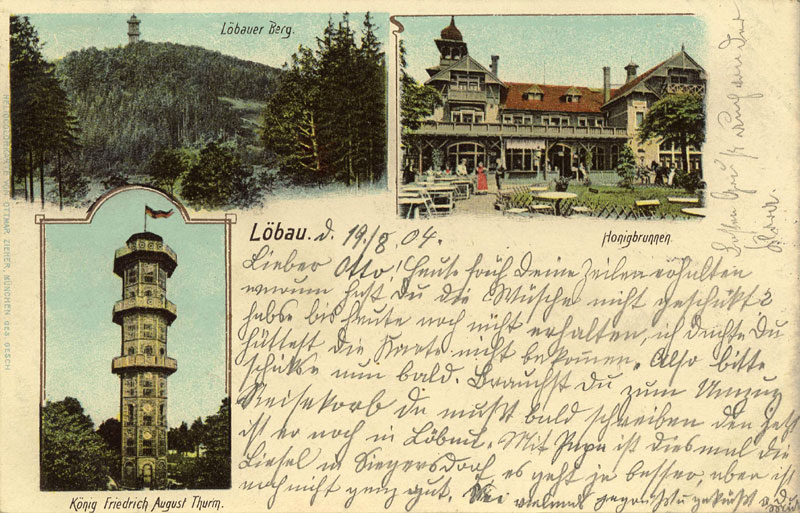 Löbauer Berg.
Honigbrunnen.
König Friedrich August Thurm.
OTTMAR ZIEHER, MÜNCHEN GES. GESCH
Löbau. d. 19/8 04.
Lieber Otto! Heute früh Deine Zeilen erhalten
warum hast Du die Wäsche nicht geschikt?
habe bis heute noch nicht erhalten, ich dachte Du
hättest die Karte nicht bekommen. Also bitte
schikke nun bald. Brauchst Du zum Umzug
Reisekorb du mußt bald schreiben den
ist er noch in Löbau. Mit Papa ist diesmal die
Liesel in Siegersdorf es geht ja besser, aber ist
noch nicht ganz gut. Sei vielmals gegrüßt u geküßt v. D.